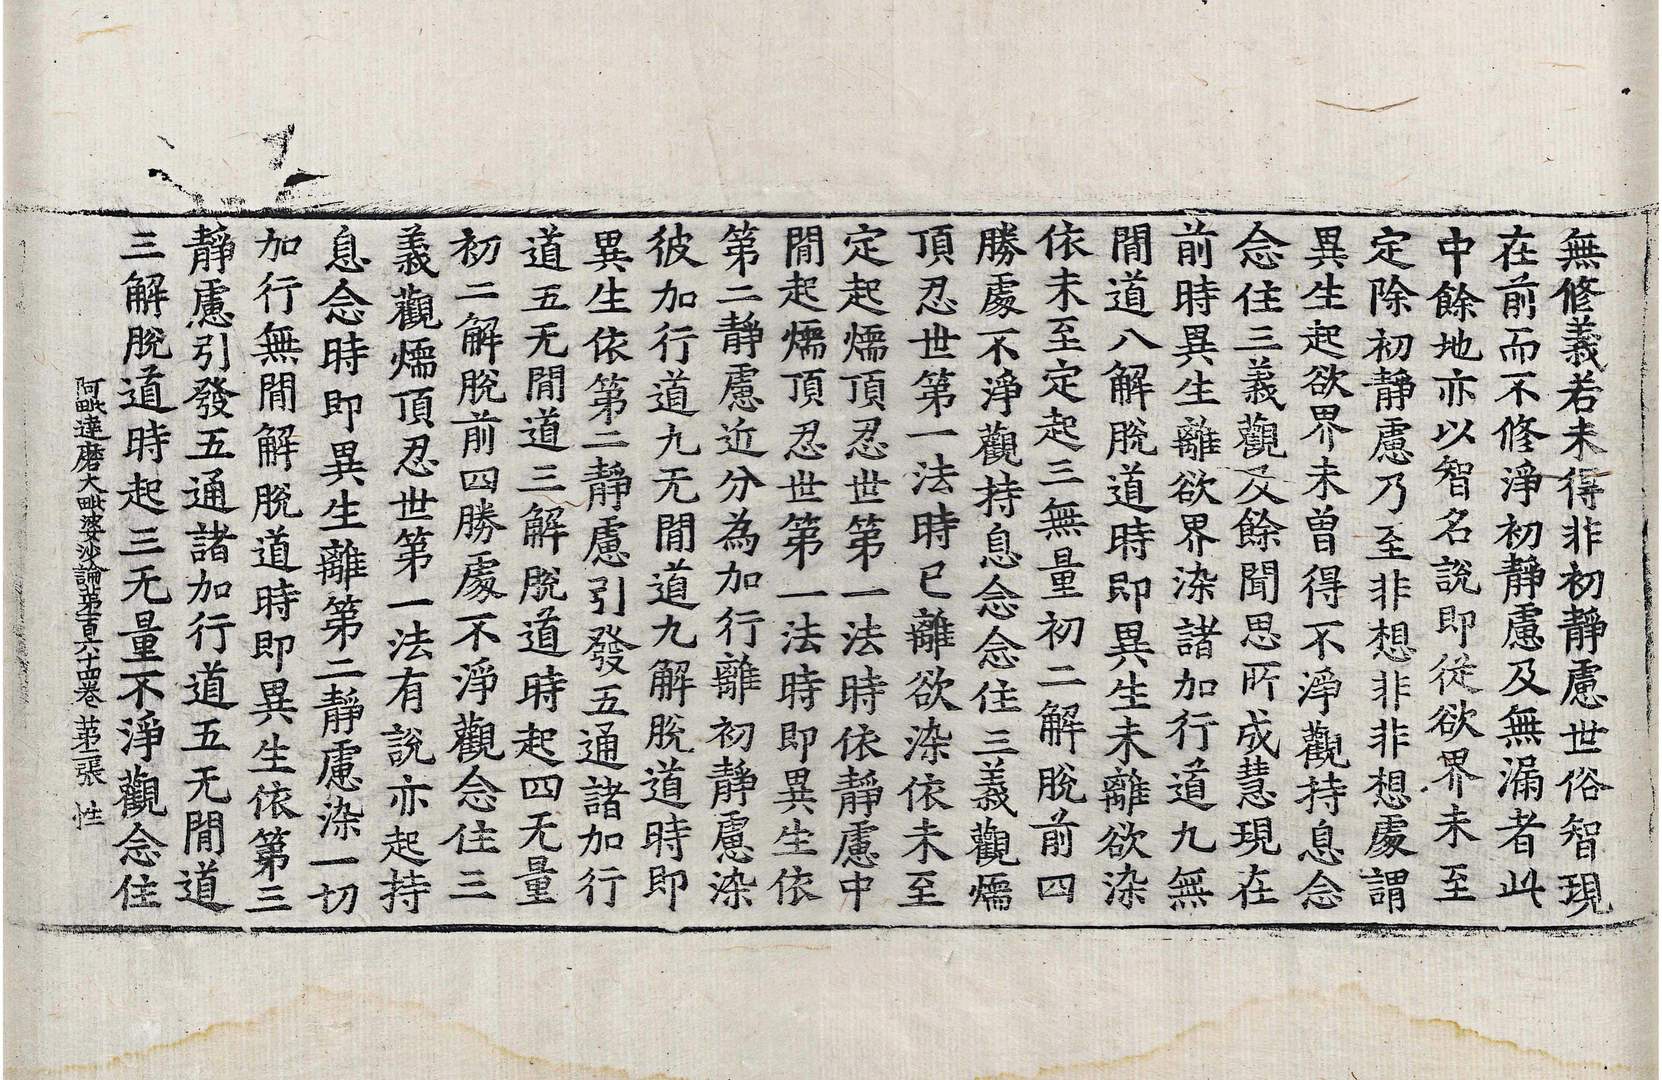 無修義若未得非初靜慮世俗智現
在前而不修淨初靜慮及無漏者此
中餘地亦以智名說即從欲界未至
定除初靜慮乃至非想非非想處謂
異生起欲界未曾得不淨觀持息念
念住三義觀及餘聞思所成慧現在
前時異生離欲界染諸加行道九無
閒道八解脫道時即異生未離欲染
依未至定起三無量初二解脫前四
勝處不淨觀持息念念住三義觀煗
頂忍世第一法時已離欲染依未至
定起煗頂忍世第一法時依靜慮中
閒起煗頂忍世第一法時即異生依
第二靜慮近分為加行離初靜慮染
彼加行道九无閒道九解脫道時即
異生依第二靜慮引發五通諸加行
道五无閒道三解脫道時起四无量
初二解脫前四勝處不淨觀念住三
義觀煗頂忍世第一法有說亦起持
息念時即異生離第二靜慮染一切
加行無閒解脫道時即異生依第三
靜慮引發五通諸加行道五无閒道
三解脫道時起三无量不淨觀念住
阿毗達磨大毗婆沙論第一百六十四卷 第二張 性